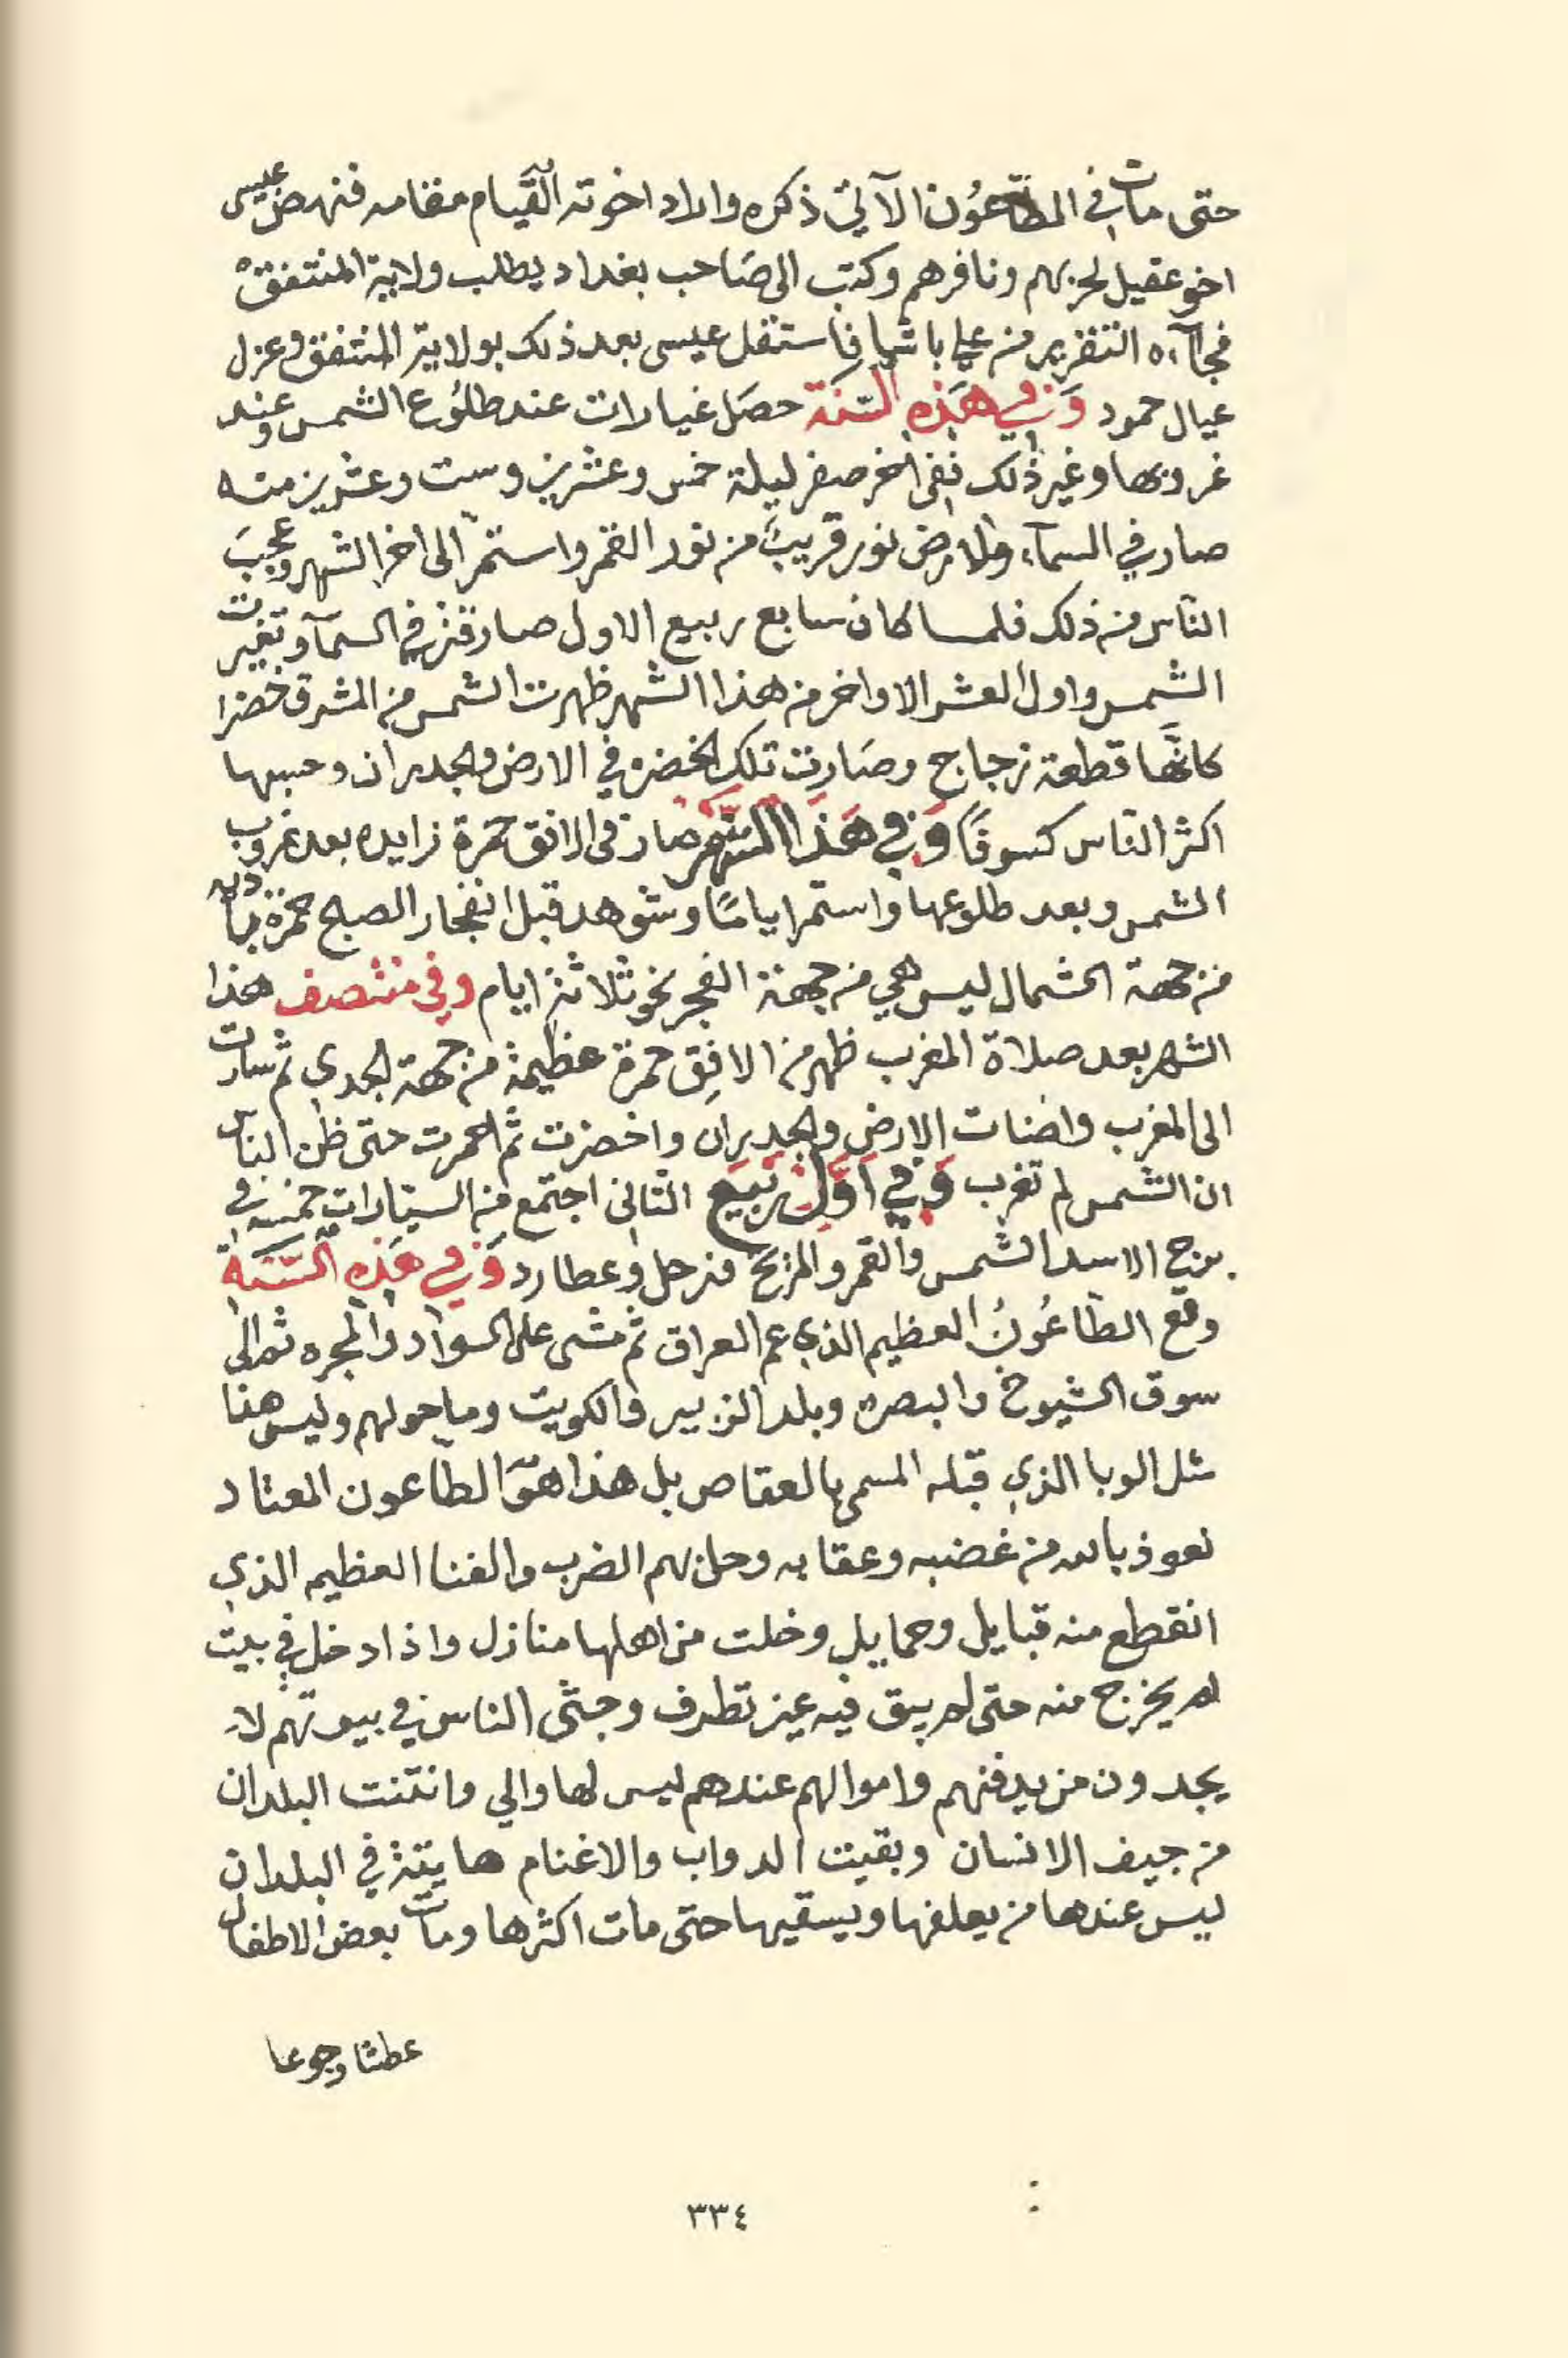 حتى مات في الطاعون الآتي ذكره واراد اخوته القيام مقامه فنهض عيسى
اخو عقيل لحربهم ونافرهم وكتب الى صَاحب بغداد يطلب ولاية المنتفق
فجآءه التقرير من علي باشا فاستقل عيسى بعد ذلك بولاية المنتفق وعزل
عيال حمود وَفي هَذِه السَّنَة حصَل غيارات عند طلُوع الشمس وعند
غروبها وغير ذلك ففي اخر صفر ليلة خمس وعشرين وست وعشرين منه
صار في السمآء والارض نور قريبً من نور القمر واستمرّ الى اخر الشهر وعجبَ
الناس من ذلك فلما كان سابع ربيع الاول صار قتر في السمآ وتغيرت
الشمس واول العشر الاواخر من هذا الشهر ظهرت الشمس من المشرق خضرا
كانَّها قطعة زجاج وصَارت تلك الخضره في الارض والجدران وحسبها
اكثر الناس كسوفًا وَفي هَذا الشَّهر صار في الافق حمرة زايده بعد غروب
الشمس وبعد طلوعها واستمر ايامًا وشوهد قبل انفجار الصبح حمرة باديه
من جهة الشمال ليس هي من جهة الفجر نحو ثلاثة ايام وفي منتصف هذا
الشهر بعد صلاة المغرب ظهر من الافق حمرة عظيمة من جهة الجدي ثم سارت
الى المغرب واضات الارض والجدران واخضرت ثم احمرت حتى ظن الناس
ان الشمس لم تغرب وَفي اوَّل رَبيع الثاني اجتمع من السيّارات خمسه في
برج الاسد الشمس والقمر والمريخ وزحل وعطارد وَفي هَذِه السَّنَة
وقع الطاعُونُ العظيم الذي عم العراق ثم مشى على السواد والمجره ثم الى
سوق الشيوخ والبصرة وبلد الزبير والكويت وما حولهم وليس هذا
مثل الوبا الذي قبله المسمى بالعقاص بل هذا هوَ الطاعون المعتاد
نعوذ بالله من غضبه وعقابه وحل بهم الضرب والفنا العظيم الذي
انقطع منه قبايل وحمايل وخلت من اهلها منازل واذا دخل في بيت
لم يخرج منه حتى لم يبق فيه عين تطرف وجثى الناس في بيوتهم لا
يجدون من يدفنهم واموالهم عندهم ليس لها والي وانتنت البلدان
من جيف الانسان وبقيت الدواب والاغنام هايتة في البلدان
ليس عندها من يعلفها ويسقيها حتى مات اكثرها ومات بعض الاطفال
عطشا وجوعا
٣٣٤